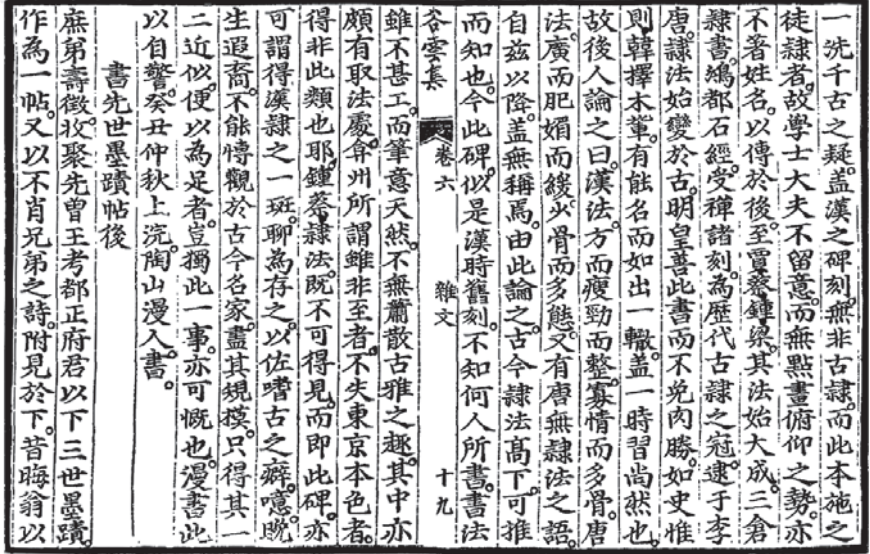 一洗千古之疑。盖漢之碑刻。無非古隷。而此本施之
徒隷者。故學士大夫不留意。而無點畫俯仰之勢。亦
不著姓名。以傳於後。至賈蔡鍾梁。其法始大成。三倉
隷書。鴻都石經。受禪諸刻。為歷代古隷之冠。逮于李
唐。隷法始變於古。明皇善此書。而不免肉勝。如史惟
則韓擇木輩。有能名而如出一轍。盖一時習尚然也。
故後人論之曰。漢法。方而瘦勁而整。寡情而多骨。唐
法。廣而肥媚而緩。少骨而多態。又有唐無隷法之語。
自兹以降。盖無稱焉。由此論之。古今隷法高下。可推
而知也。今此碑。似是漢時舊刻。不知何人所書。書法
谷雲集 卷六 雜文 十九
雖不甚工。而筆意天然。不無蕭散古雅之趣。其中亦
頗有取法處。弇州所謂雖非至者。不失東京本色者。
得非此類也耶。鍾蔡隷法。旣不可得見。而即此碑。亦
可謂得漢隷之一斑。聊為存之。以佐嗜古之癖。噫。旣
生遐裔。不能博觀於古今名家。盡其規模。只得其一
二近似。便以為足者。豈獨此一事。亦可慨也。漫書此
以自警。癸丑仲秋上浣。陶山漫人書。
書先世墨蹟帖後
庶弟壽徵。收聚先曾王考都正府君以下三世墨蹟。
作為一帖。又以不肖兄弟之詩。附見於下。昔晦翁以